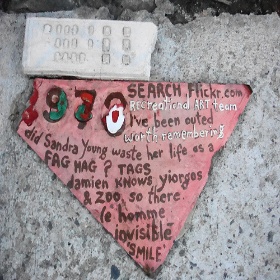 SEARCH Flickr.com
Recreational ART team
1970
I've been outed
worth remembering
did Sandra Young waste her life as a
FAG HAG ? TAGS
damien KNOWS, yiorgos
& ZOO, so there.
le homme
invisible
'SMILE'